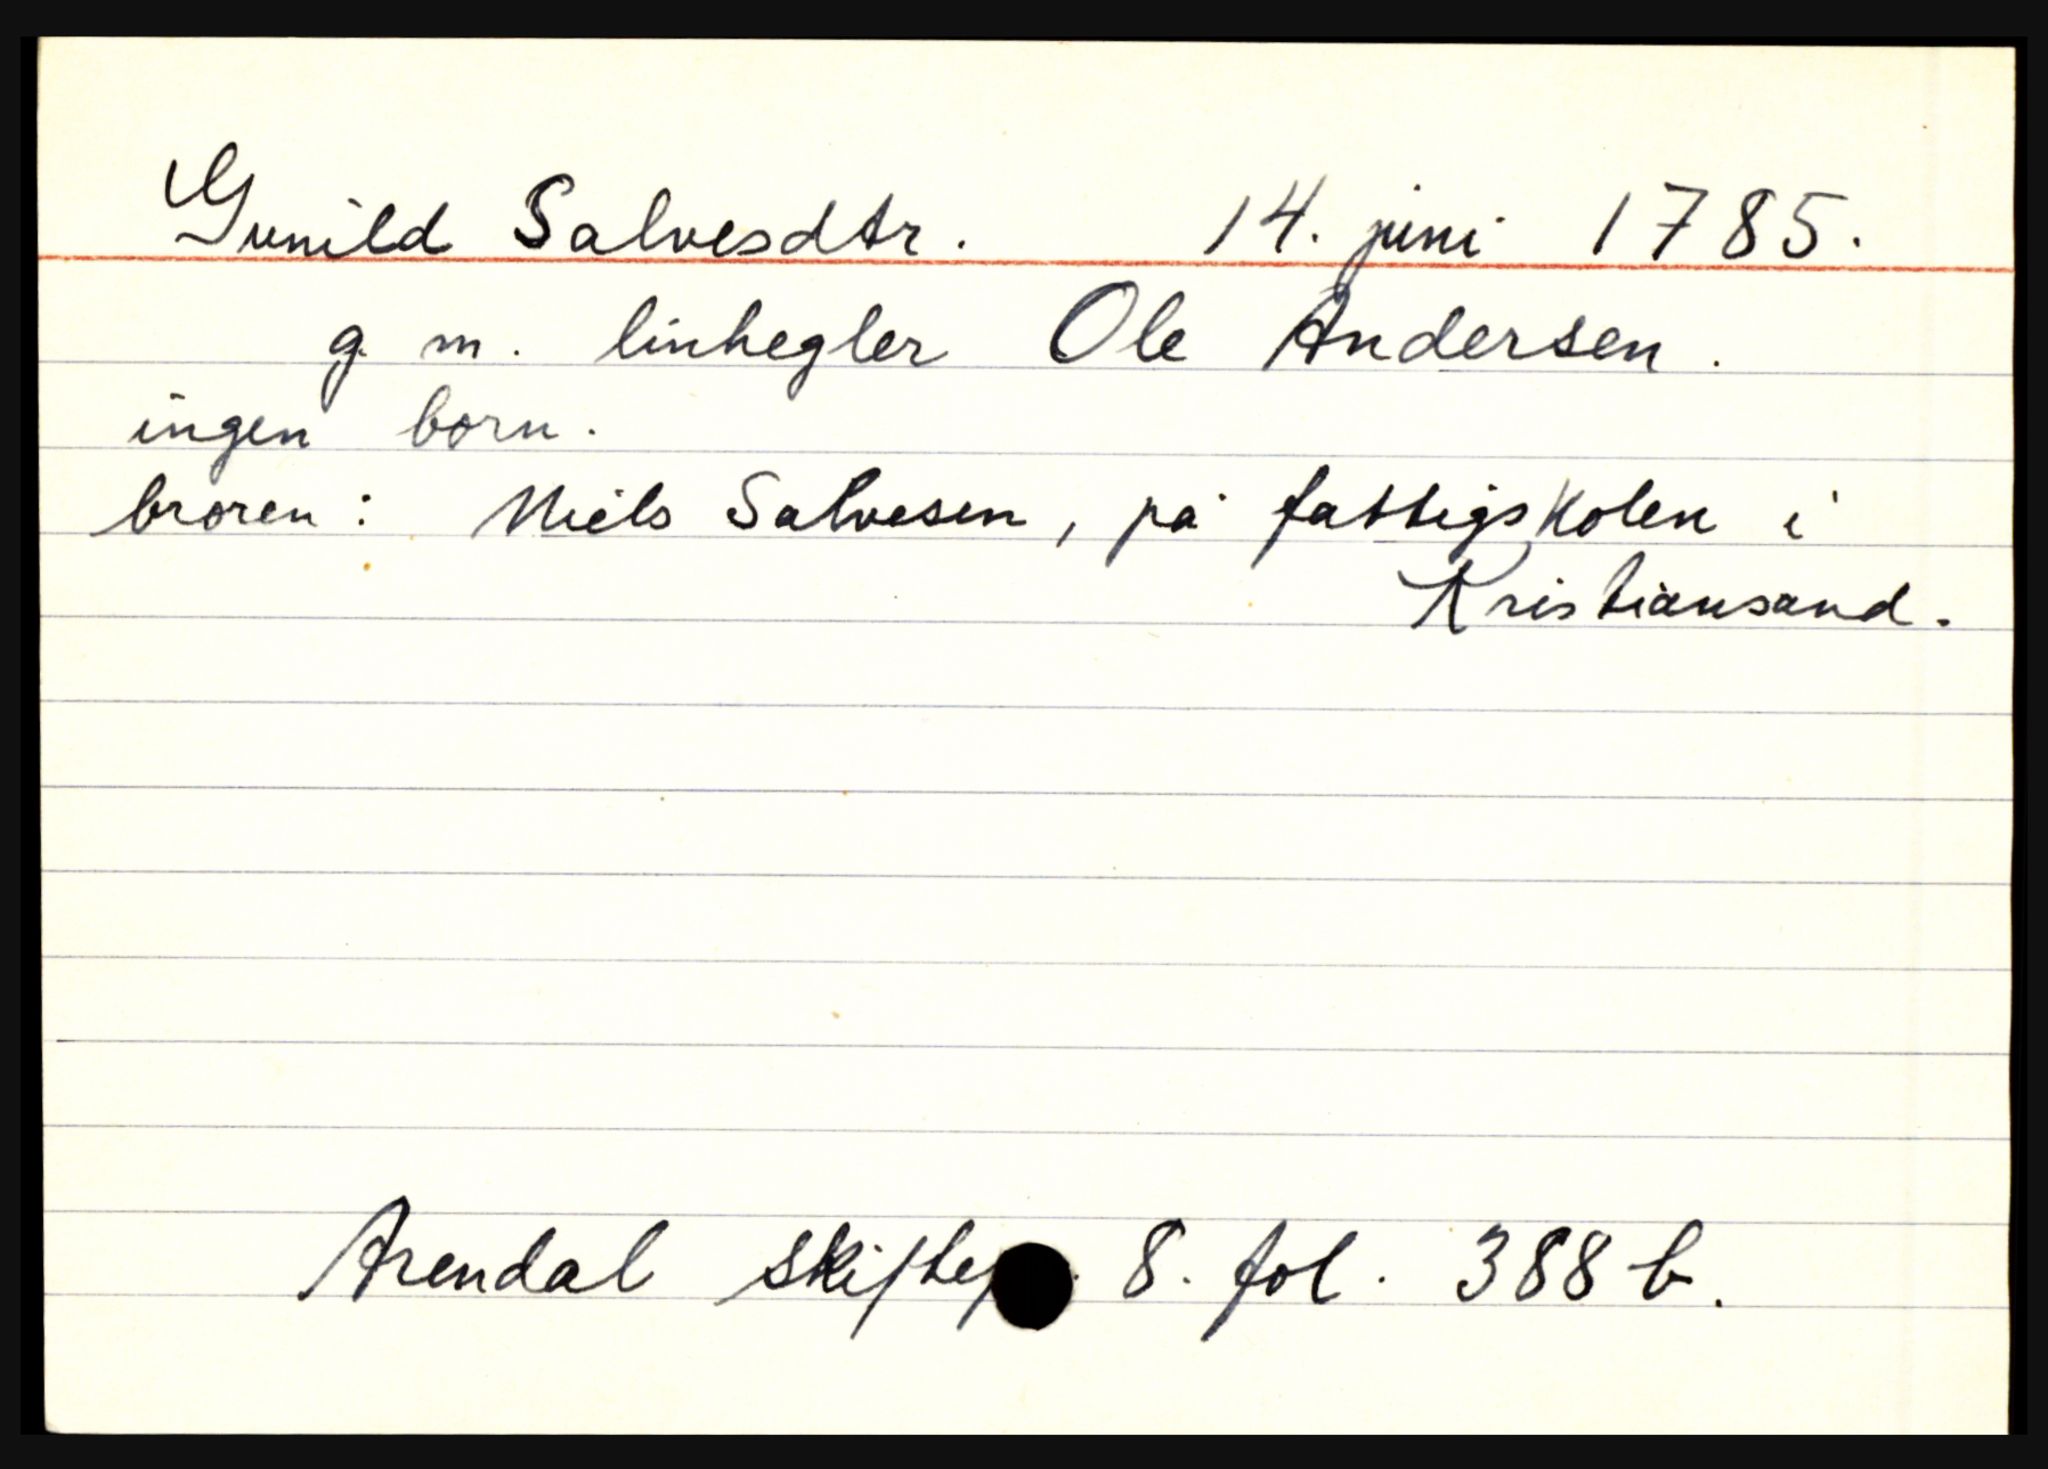 Gunild Salvesdtr. 14. juni 1785.
g. m. linhegler Ole Andersen.
ingen born.
broren: Niels Salvesen, på fattigskolen i
Kristiansand.
Arendal 8. fol. 388 b.